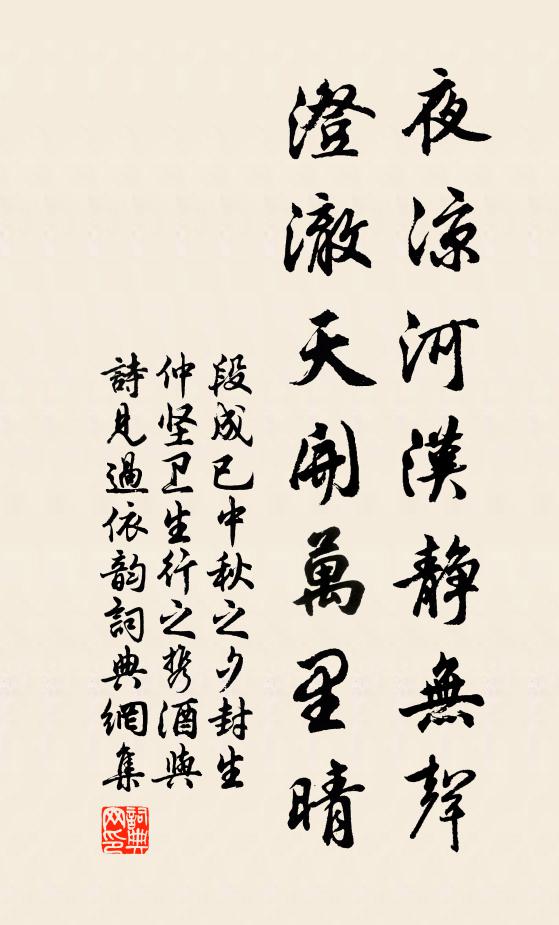 夜凉河漢静無聲
澄澈天開萬里晴
段成己中秋之夕封生
仲坚卫生行之携酒與
詩見過依韵詞典網集
詞典网印